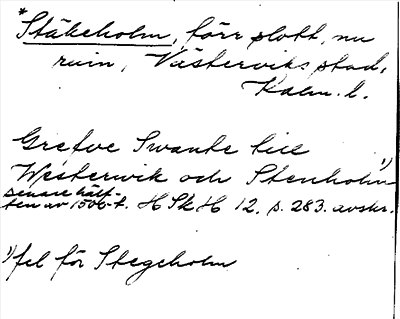 *Stäkeholm, förr slott, nu
ruin, Västerviks stad,
Kalm. l.
Grefve Swante till
Westerwik och Stenholm 1)
senare hälf-
ten av 1500-t. HSkH 12. s. 283. avskr.
1) fel för Stegeholm